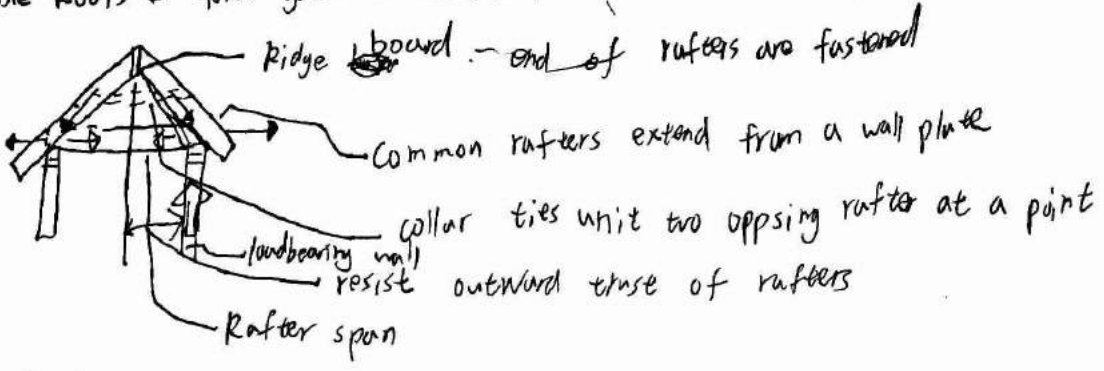 Ridge board - end of rafters are fastened
Common rafters extend from a wall plate
collar ties unit two oppsing rafter at a point
loadbearing wall
resist outward trust of rafters
Rafter span